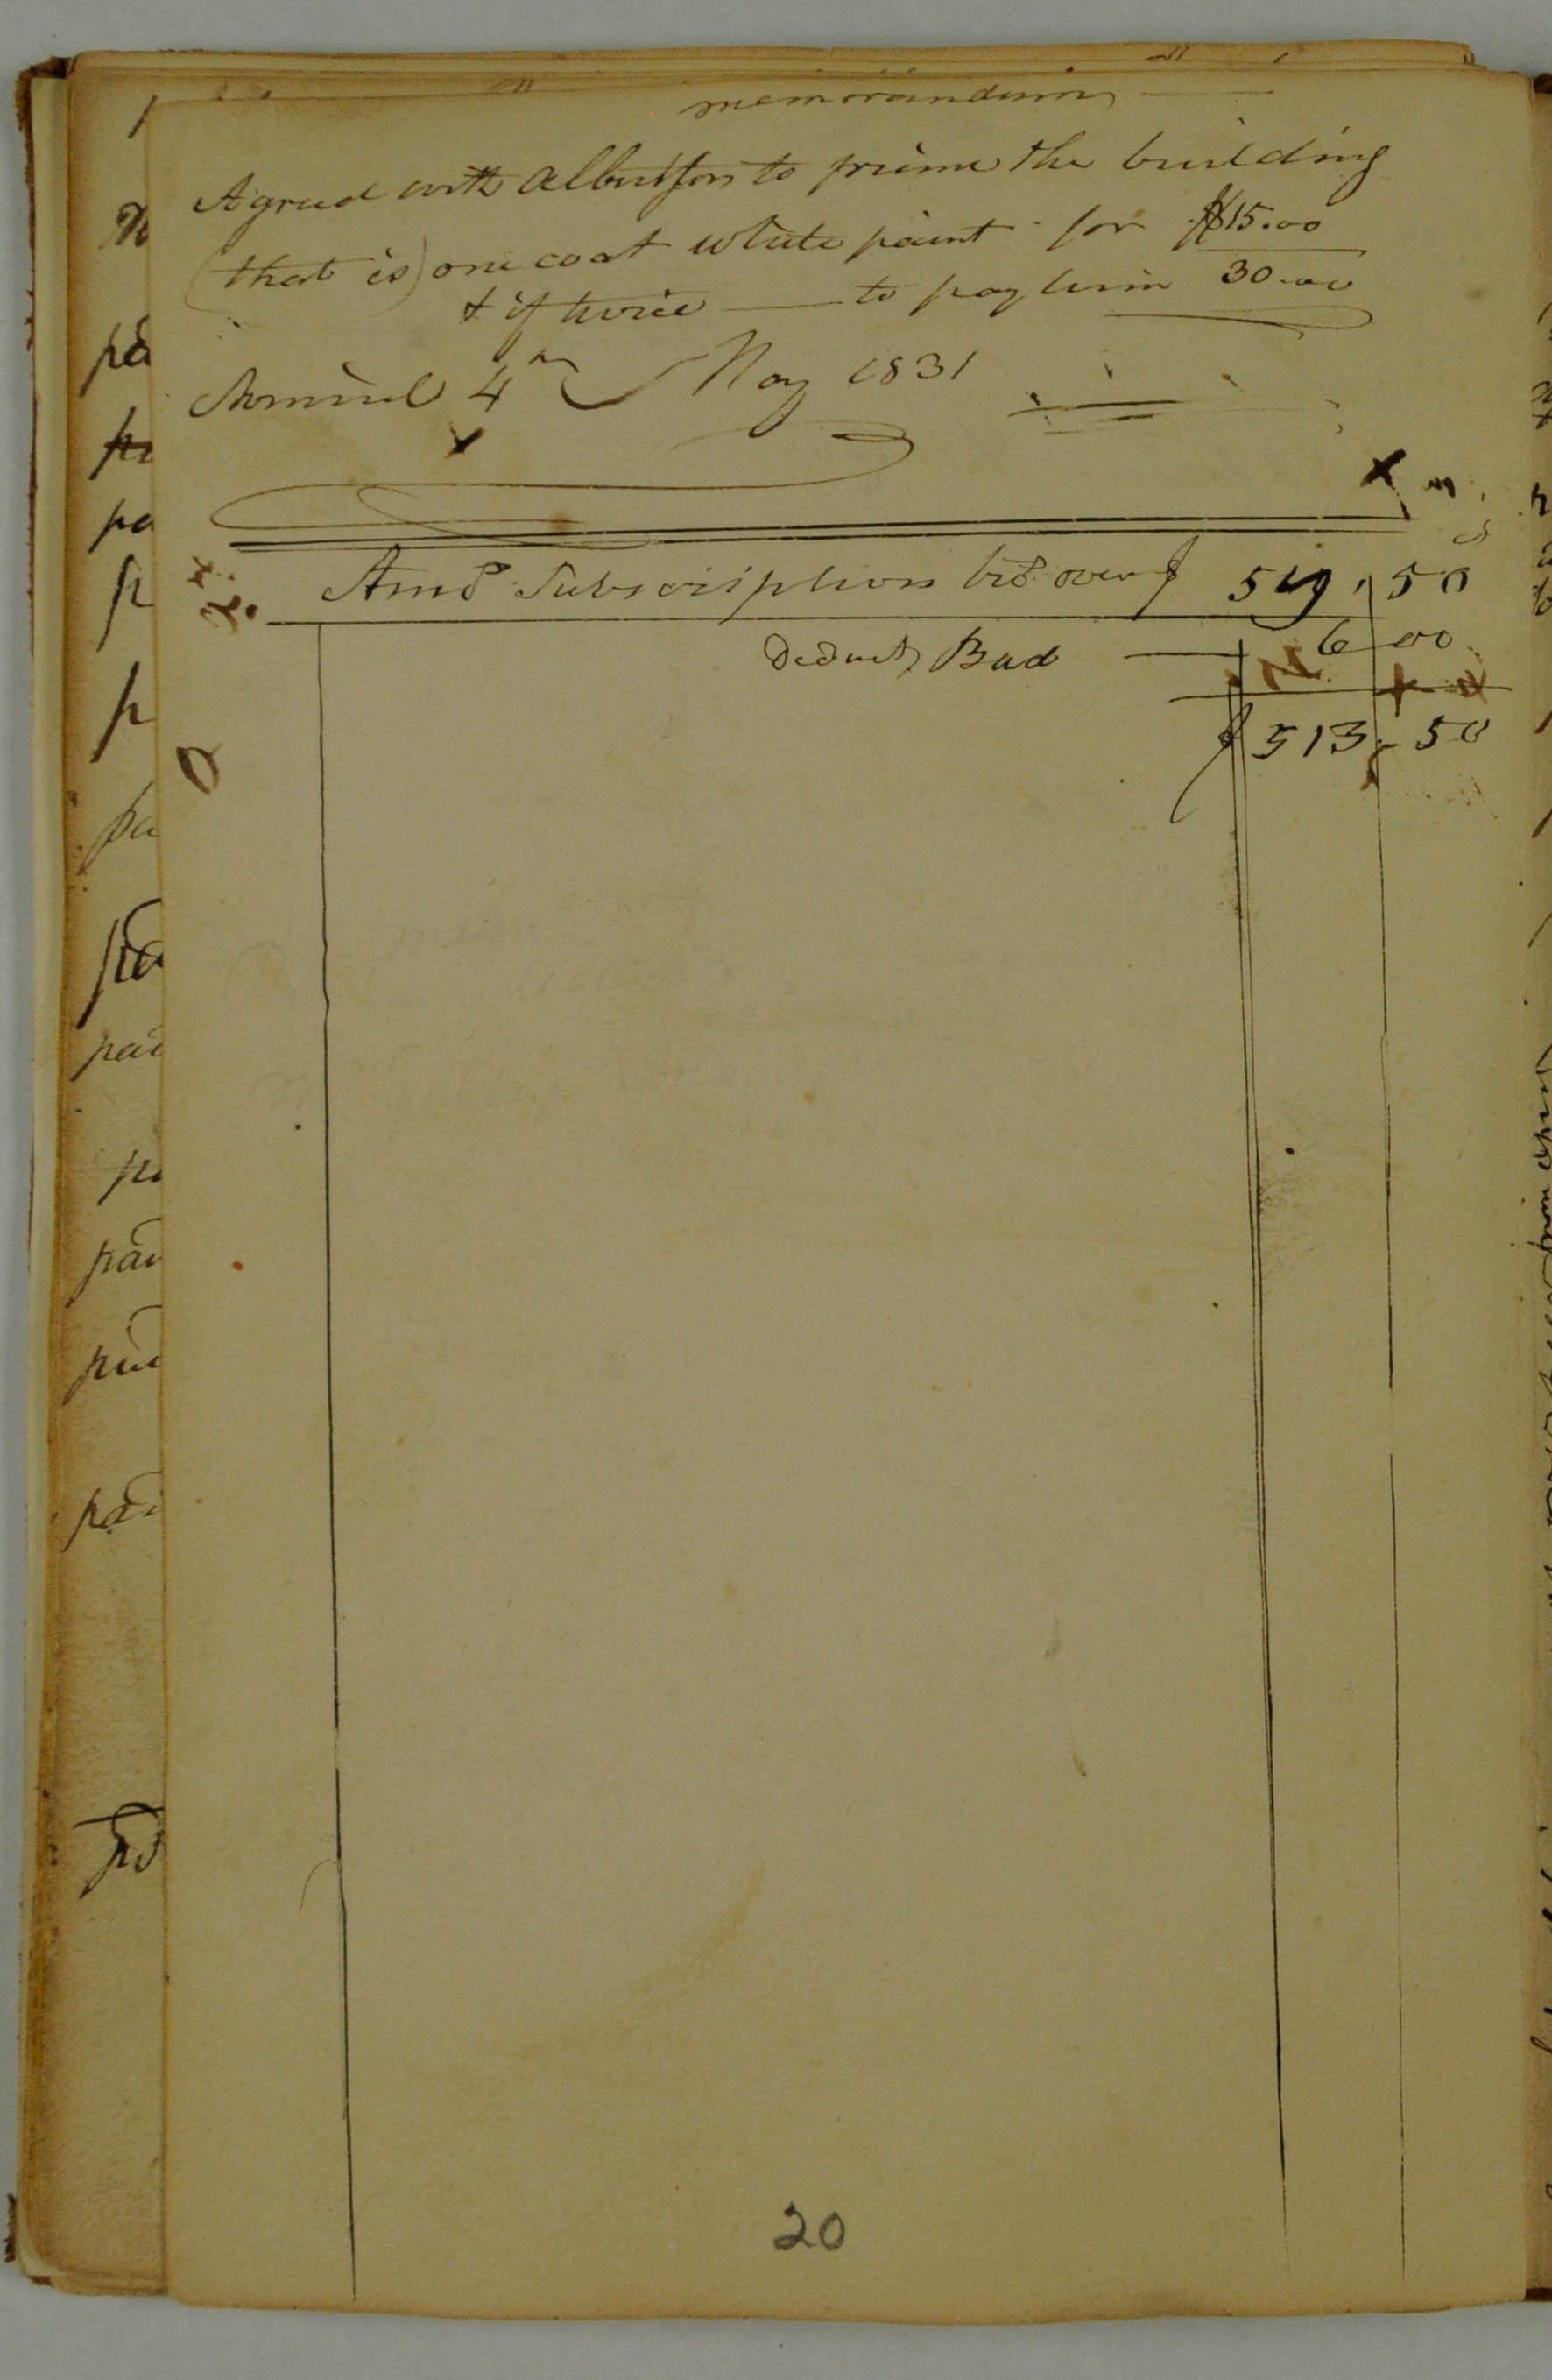 memorandum
Agreed with Albertson to prime the building
(that is) one coat white paint for $15.00
& if twice — to pay him 30.00
4th May 1831
Amot Subscription brot over $ 519.50
Deduct Bad — 6 00
$ 513.50
20